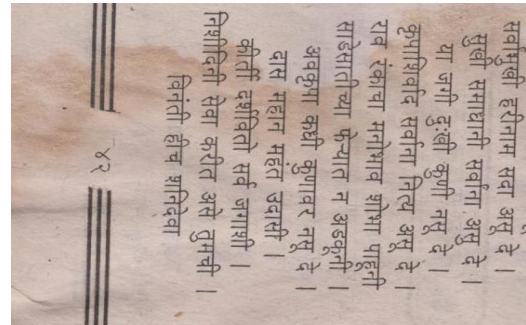 सर्वामुखी हरीनाम सदा असू दे ।
सुखी समाधानी सर्वांना असु दे ।
या जगी दुःखी कुणी नसू दे ।
कृपाशिर्वाद सर्वांना नित्य असू दे ।
राव रंकाचा मनोभाव शोभा पाहूनी
साडेसातीच्या फेऱ्यात न अडकूनी ।
अवकृपा कधी कुणावर नसू दे ।
दास महान महंत उदासी ।
कीर्ती दर्शविते सर्व जगाशी ।
निशीदिनी सेवा करीत असे तुमची ।
विनंती हीच शनिदेवा
४२